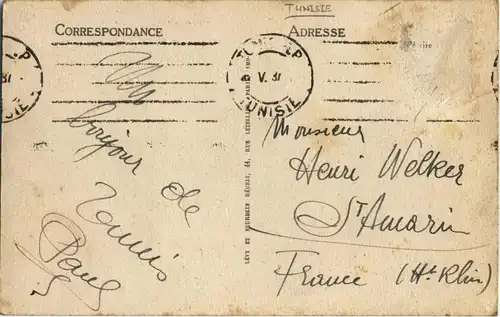 TUNISIE
CORRESPONDANCE
ADRESSE
TUNIS R.P
V. 31
TUNISIE
Un
bonjour de
Tunis
Paul
LÉVY ET NEURDEIN RÉUNIS, 44, RUE LETELLIER, PARIS IMP.
Monsieur
Henri Welker
St Amarin
France (Ht Rhin)